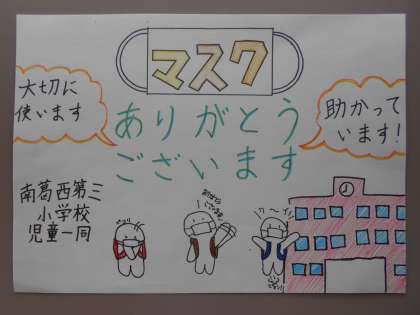 マスク
大切に
使います
ありがとう
ございます
助かって
います!
南葛西第三
小学校
児童一同